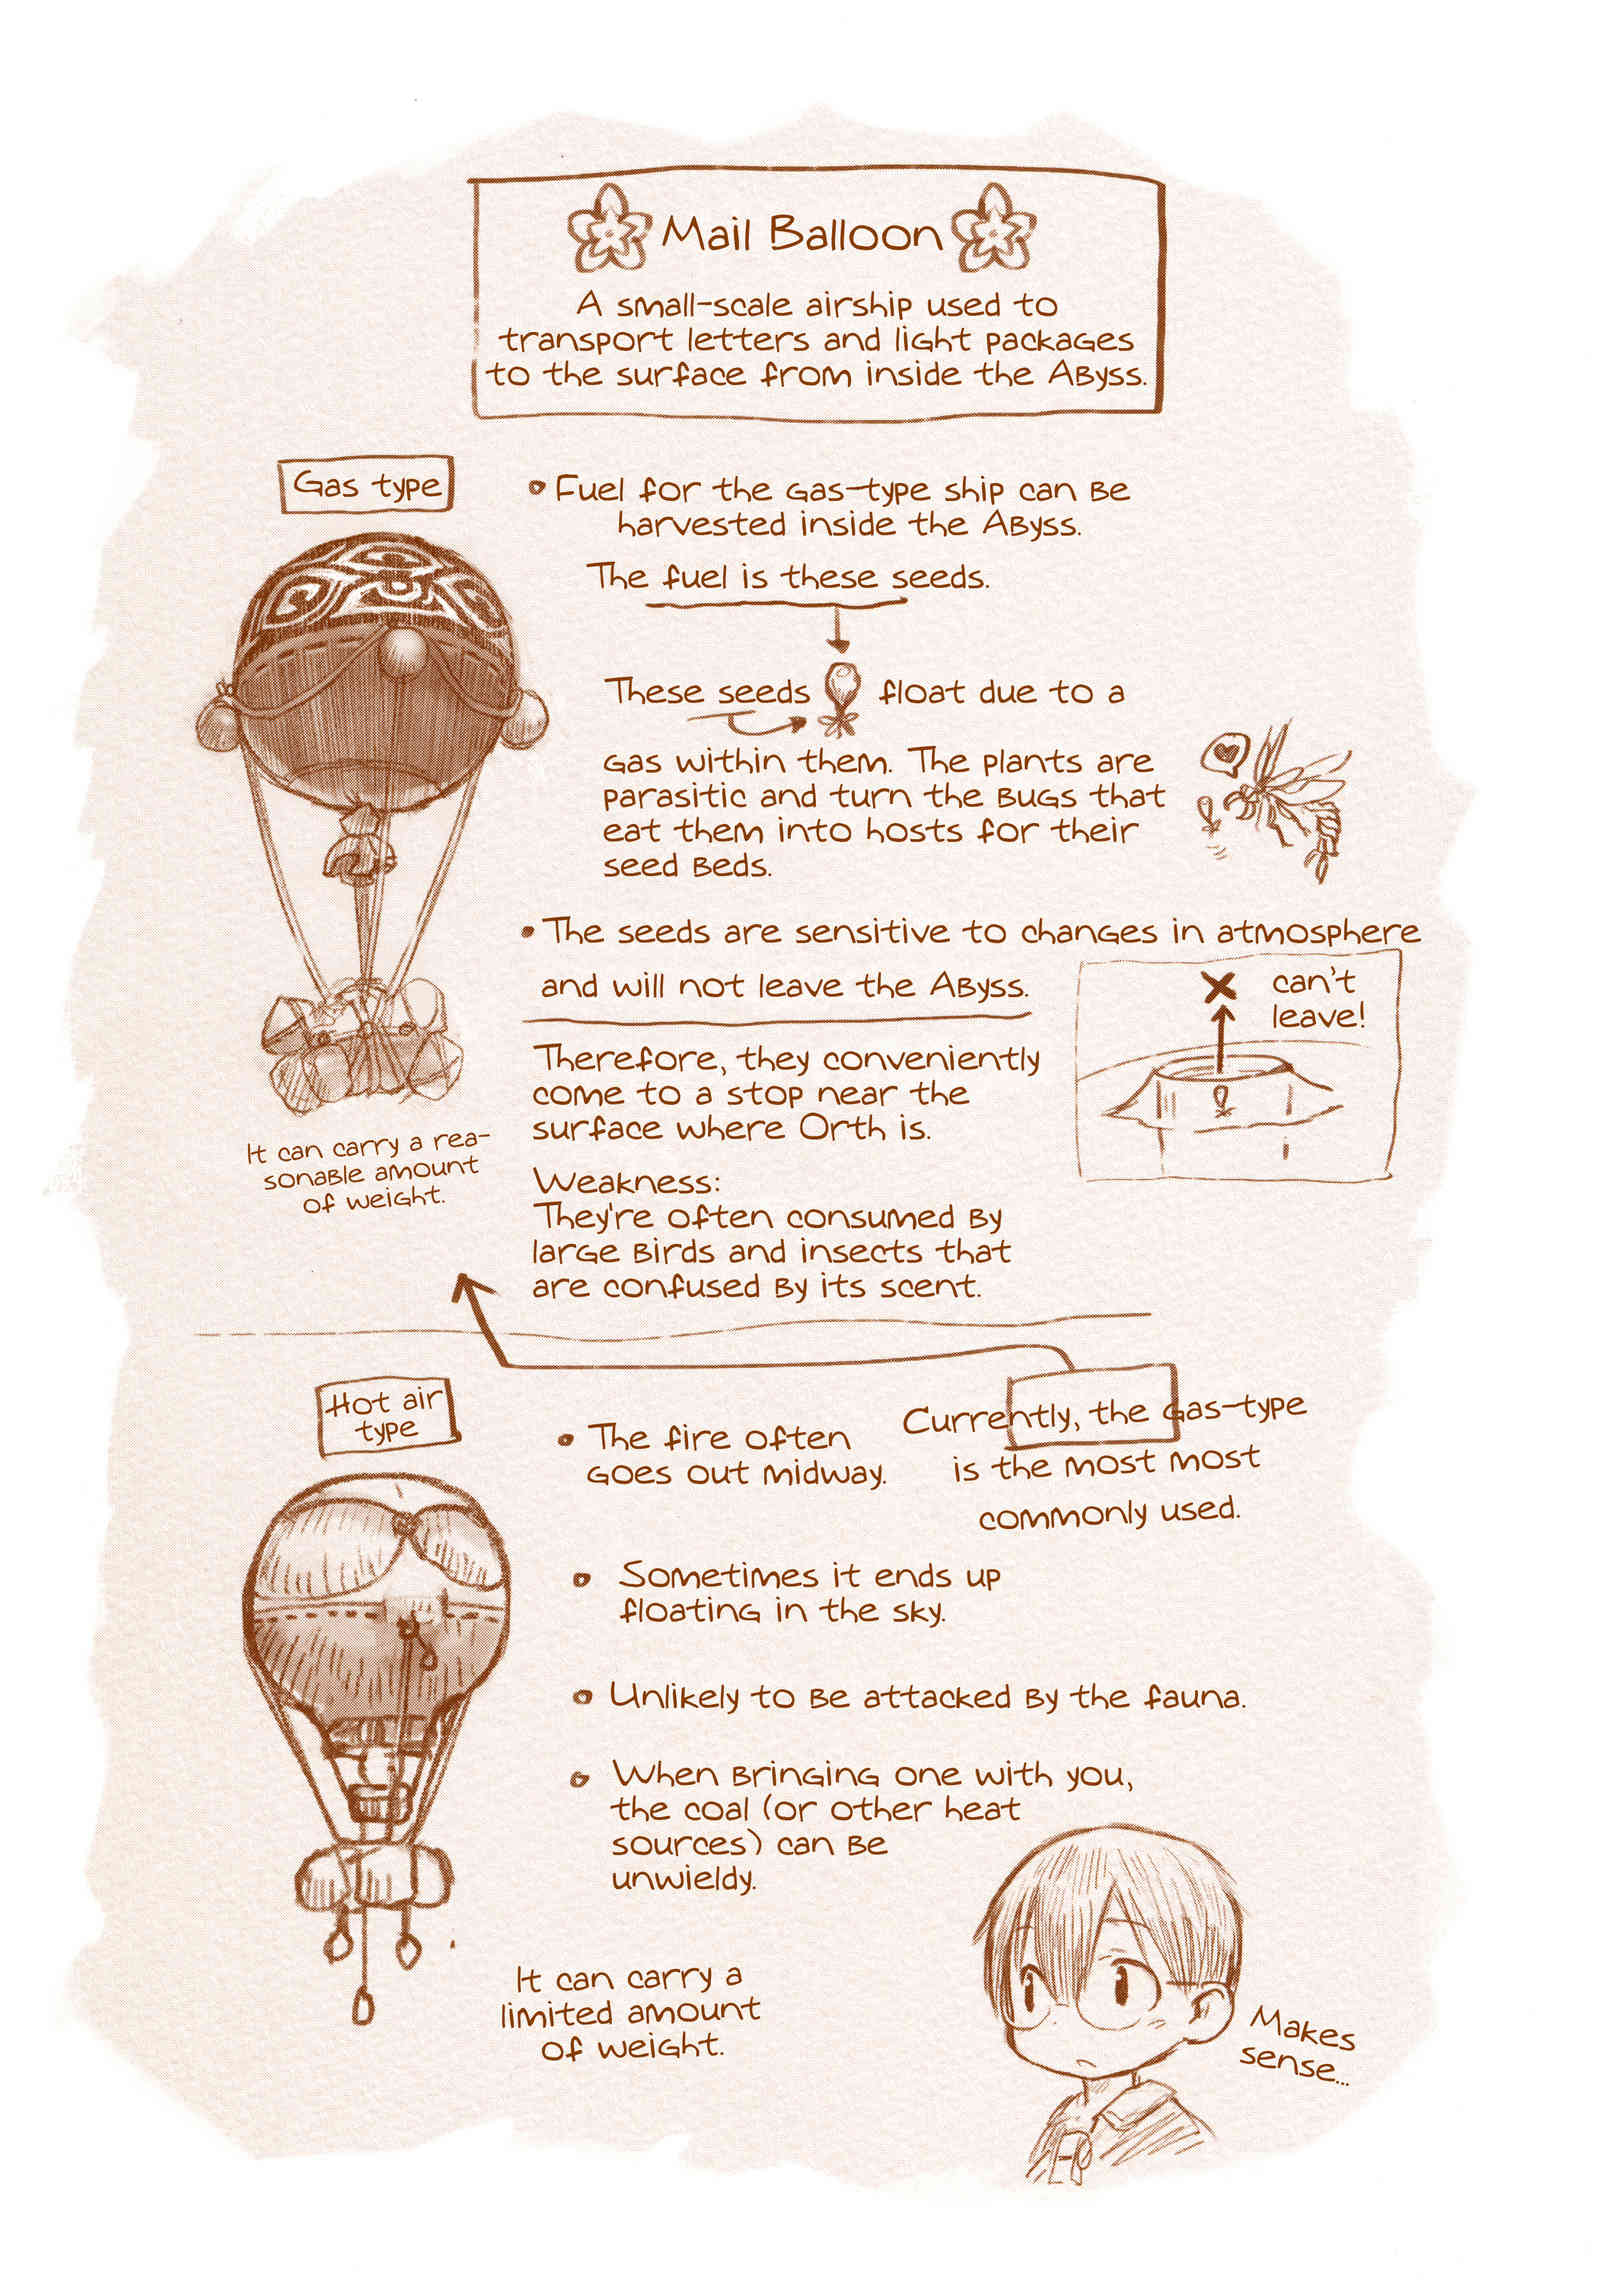 Mail Balloon
A small-scale airship used to
transport letters and light packages
to the surface from inside the Abyss.
Gas type
• Fuel for the gas-type ship can be
harvested inside the Abyss.
The fuel is these seeds.
These seeds float due to a
gas within them. The plants are
parasitic and turn the bugs that
eat them into hosts for their
seed beds.
• The seeds are sensitive to changes in atmosphere
and will not leave the Abyss.
can't
leave!
Therefore, they conveniently
come to a stop near the
surface where Orth is.
It can carry a rea-
sonable amount
of weight.
Weakness:
They're often consumed by
large birds and insects that
are confused by its scent.
Hot air
type
• The fire often
goes out midway.
Currently, the gas-type
is the most most
commonly used.
• Sometimes it ends up
floating in the sky.
• Unlikely to be attacked by the fauna.
• When bringing one with you,
the coal (or other heat
sources) can be
unwieldy.
It can carry a
limited amount
of weight.
Makes
sense...